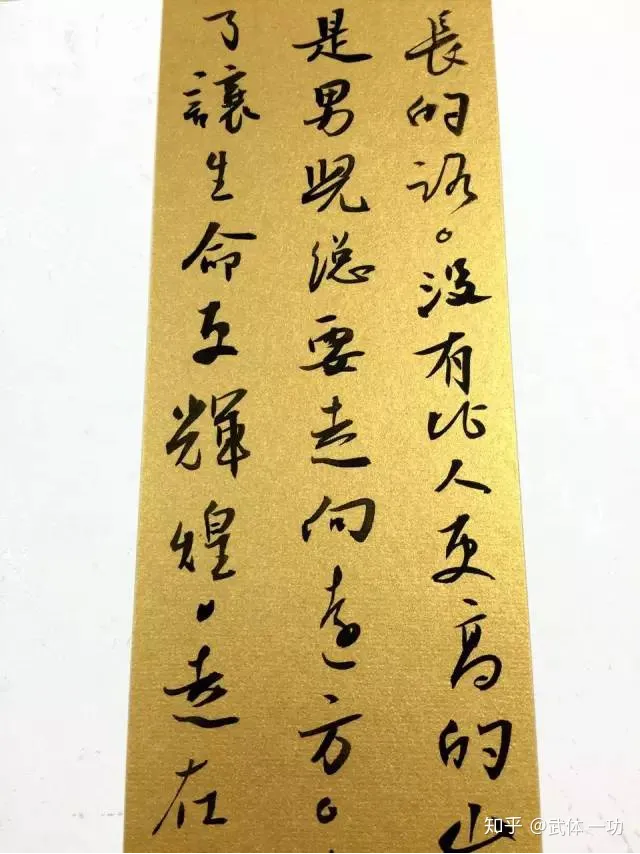 長的路。没有比人更高的山
是男兒總要走向遠方。
了讓生命更輝煌。走在
知乎 @武体一功